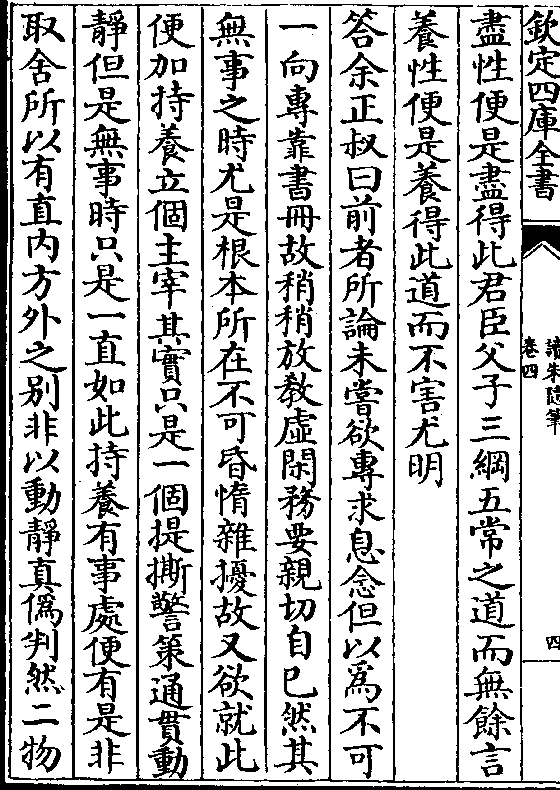 欽定四庫全書
讀朱隨筆
卷四
四
盡性便是盡得此君臣父子三綱五常之道而無餘言
養性便是養得此道而不害尤明
答余正叔曰前者所論未嘗欲專求息念但以為不可
一向專靠書冊故稍稍放教虛閑務要親切自己然其
無事之時尤是根本所在不可昏惰雜擾故又欲就此
便加持養立個主宰其實只是一個提撕警策通貫動
靜但是無事時只是一直如此持養有事處便有是非
取舍所以有直内方外之別非以動靜真偽判然二物